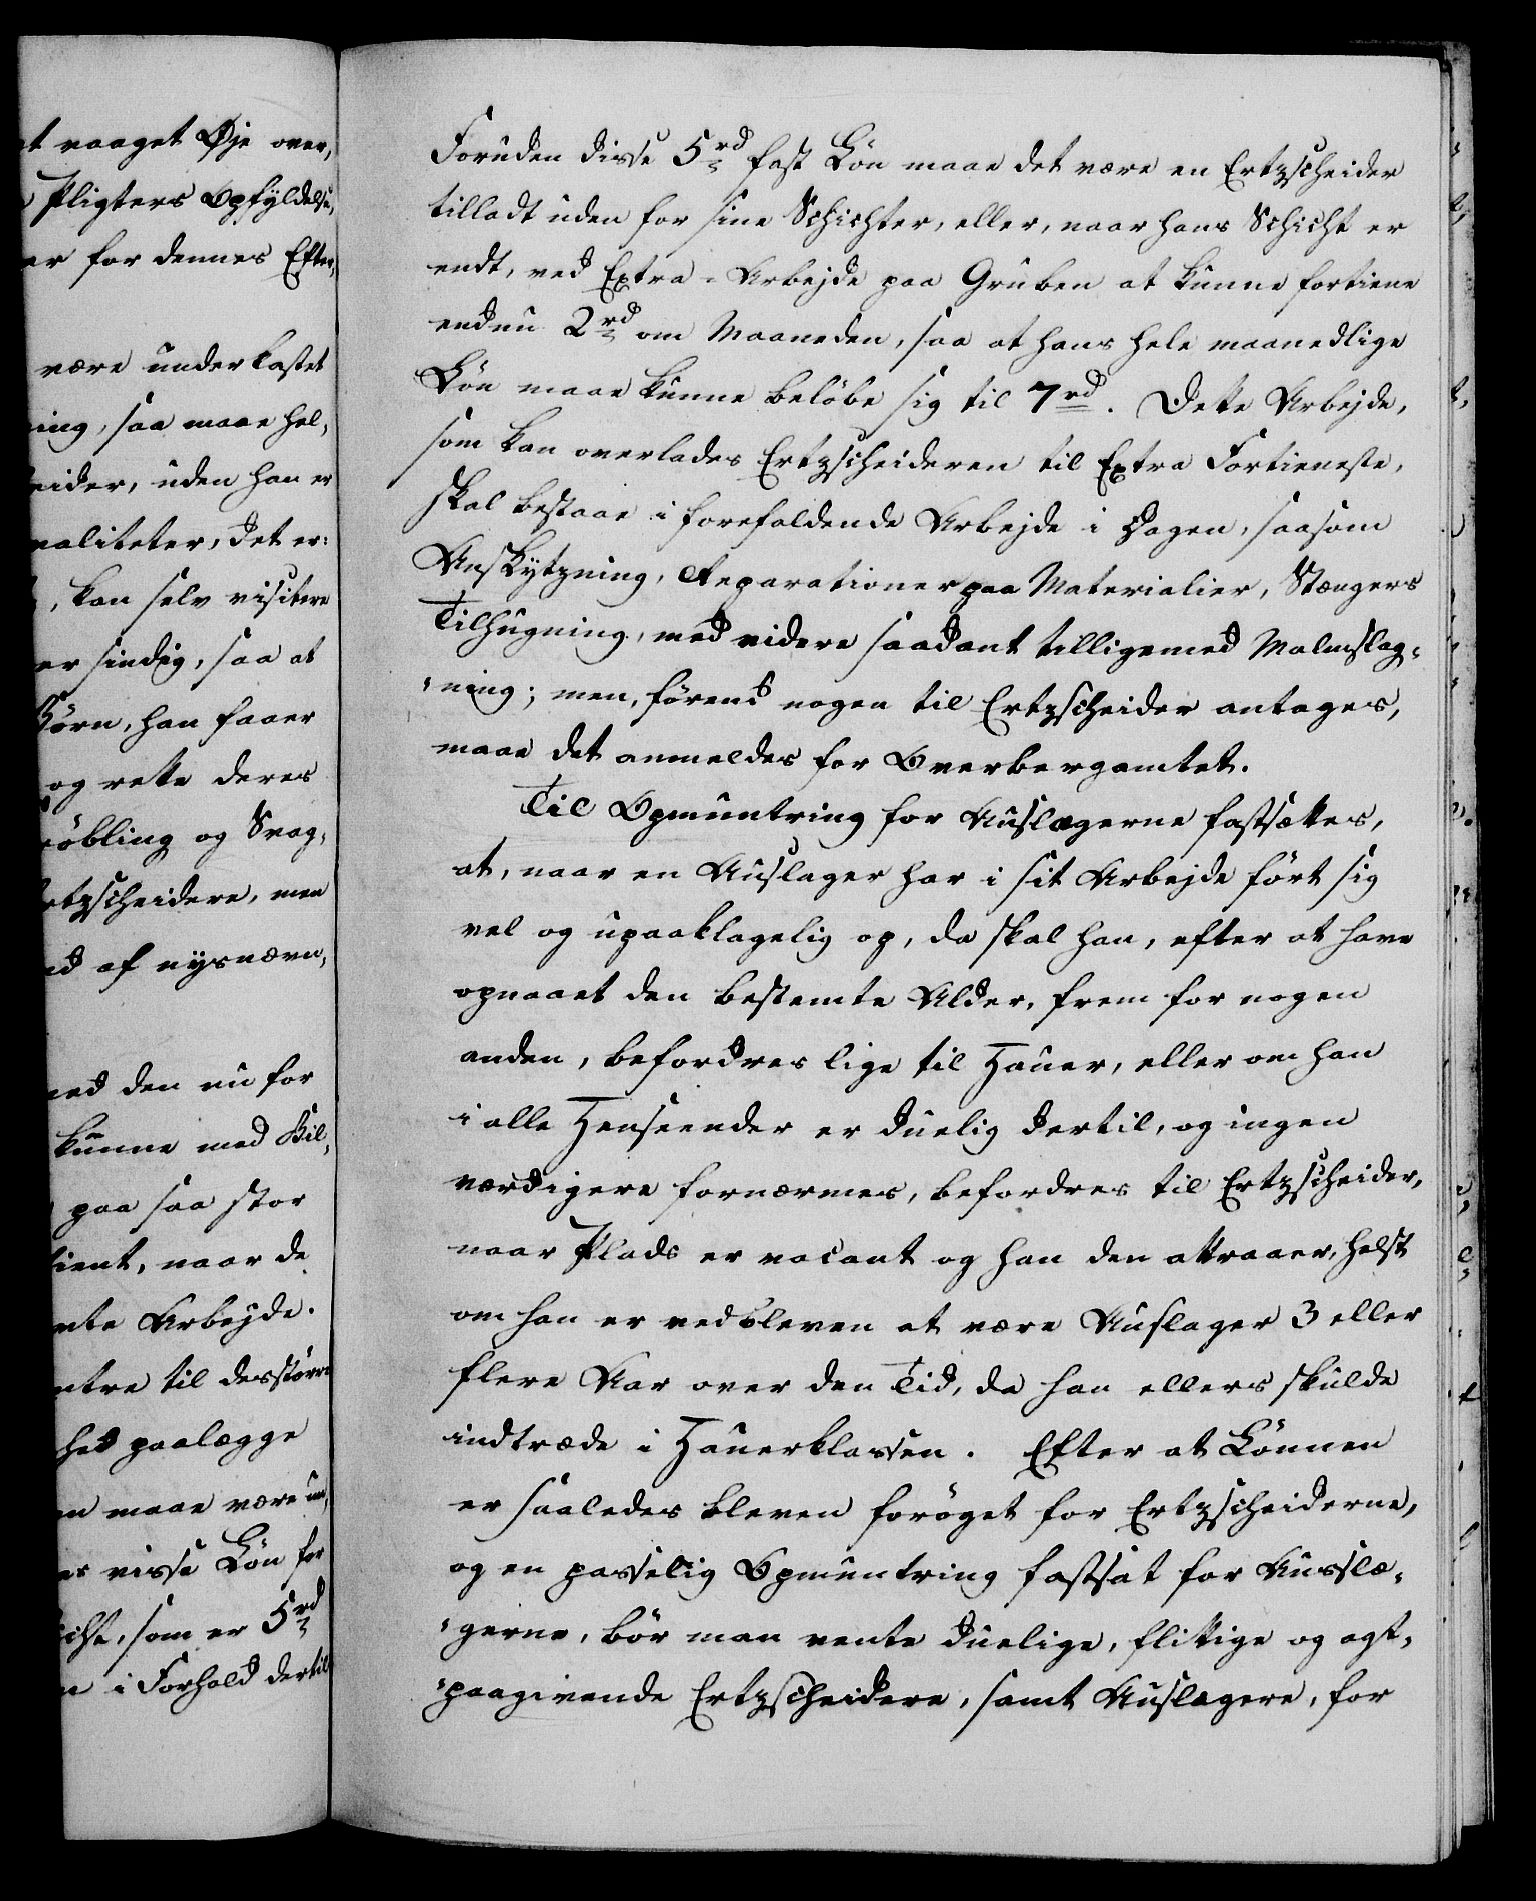 t vaaget Øje over,
Pligters Opfyldelse,
er for dennes Efter,
være underkastet
ing, saa maae hel,
eider, uden han er
valiteter, det er:
, kan selv visitere
er sindig, saa at
Börn, han faaer
og rette deres
öbling og Svag,
rtzscheidere, men
d af nysnævn,
ned den nu for
kunne med Bil,
paa saa stor
tient, naar de
mte Arbejde.
ntre til desstörre
hed paalægge
en maae være un,
es visse Lön for
icht, som er 5rd
n i Forhold dertil
Foruden disse 5rd fast Lön maae det være en Ertzscheider
tilladt uden for sine Schichter, eller, naar hans Schicht er
endt, ved Extra-Arbejde paa Gruben at kunne fortiene
endnu 2rd om Maaneden, saa at hans hele maanedlige
Lön maae kunne belöbe sig til 7rd. Dette Arbejde,
som kan overlades Ertzscheideren til Extra Fortieneste,
skal bestaae i forefaldende Arbejde i Dagen, saasom
Anskytzning, Reparationer paa Materialier, Stængers
Tilhugning, med videre saadant tilligemed Malmslag-
-ning; men, förend nogen til Ertzscheider antages,
maae det anmeldes for Overbergamtet.
Til Opmuntring for Auslægerne fastsættes,
at, naar en Auslager har i sit Arbejde fört sig
vel og upaaklagelig op, da skal han, efter at have
opnaaet den bestemte Alder, frem for nogen
anden, befordres lige til Hauer, eller om han
i alle Henseender er duelig dertil, og ingen
værdigere fornærmes, befordres til Ertzscheider,
naar Plads er vacant og han den attraaer, helst
om han er vedbleven at være Auslager 3 eller
flere Aar over den Tid, da han ellers skulde
indtræde i Hauerklassen. Efter at Lönnen
er saaledes bleven foröget for Ertzscheiderne,
og en passelig Opmuntring fastsat for Ausslæ-
-gerne, bör man vente duelige, flittige og agt-
-paagivende Ertzscheidere, samt Auslægere, for